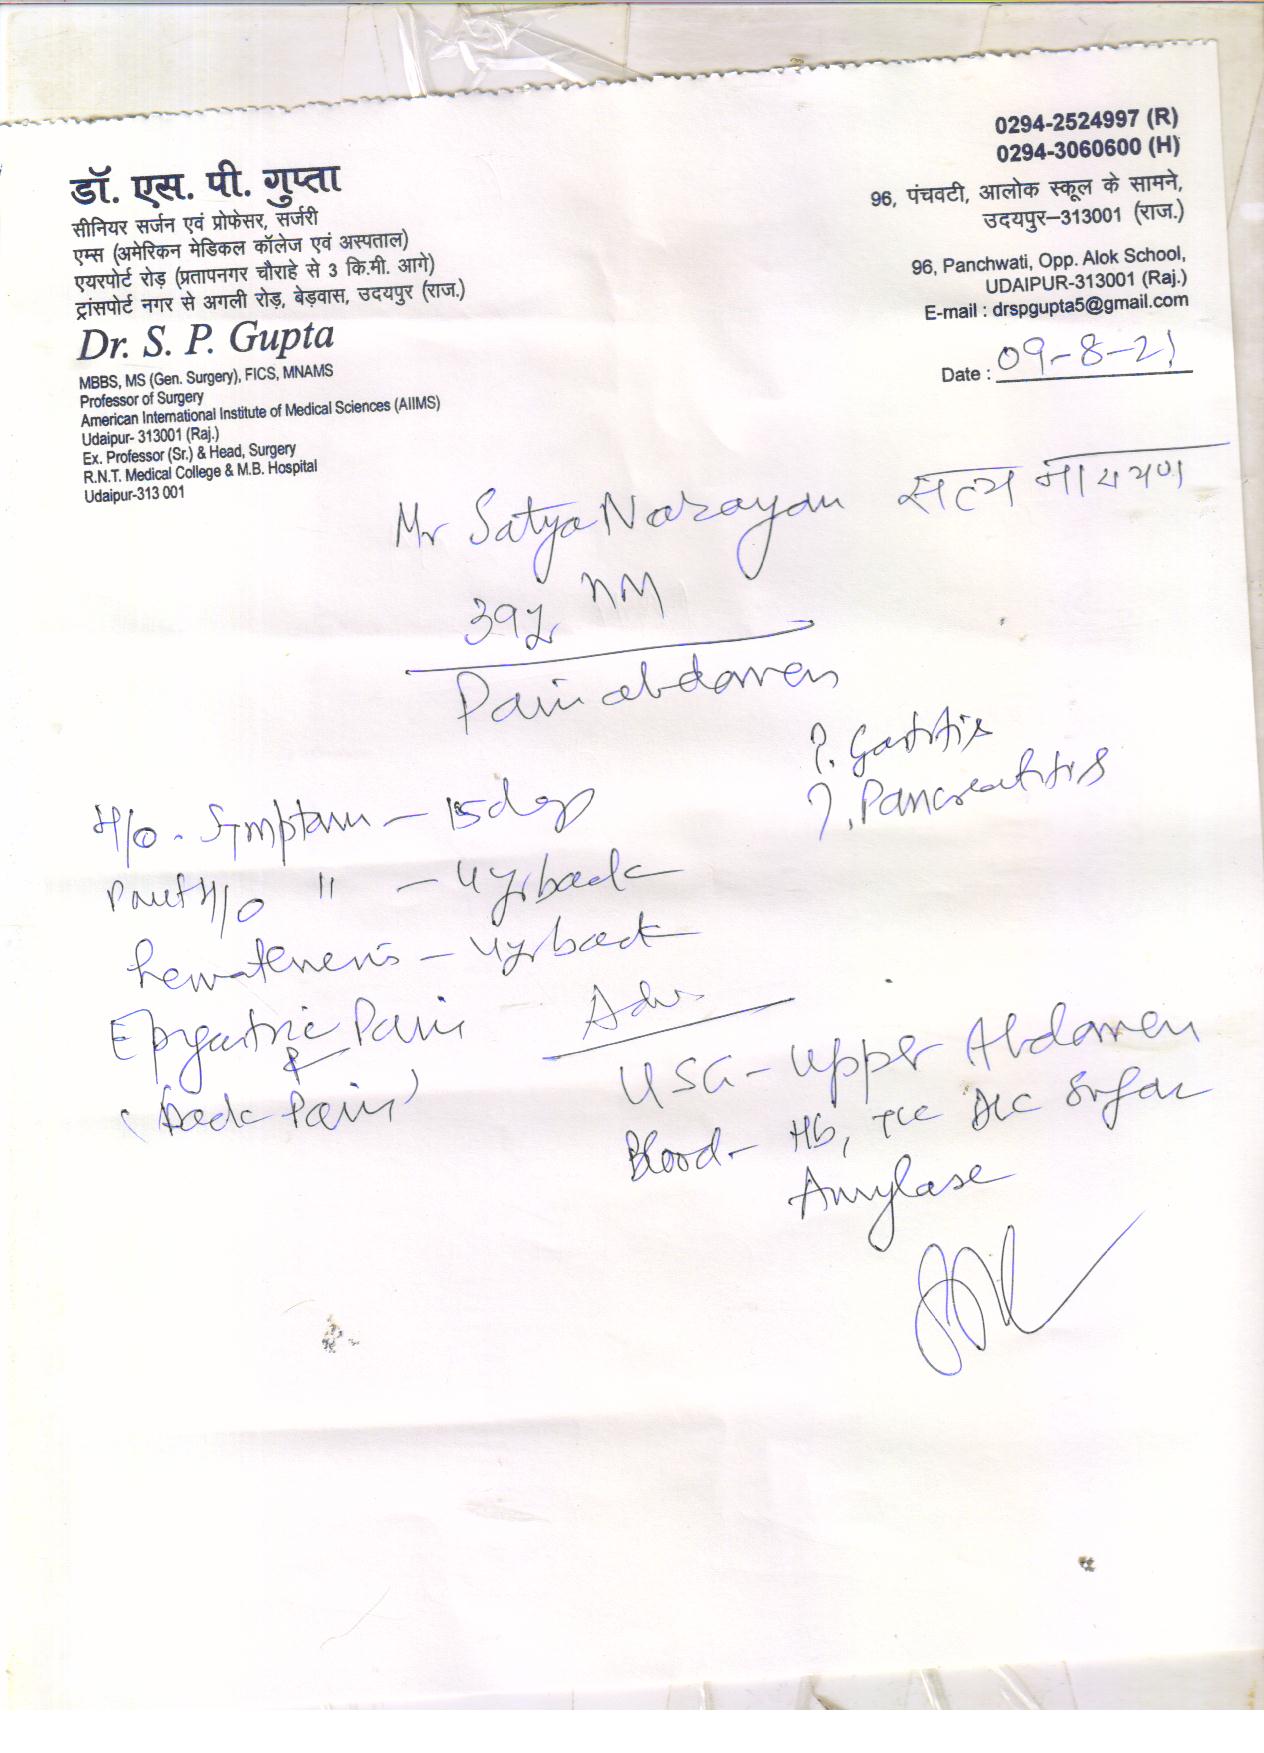 डॉ. एस. पी. गुप्ता
सीनियर सर्जन एवं प्रोफेसर, सर्जरी
एम्स (अमेरिकन मेडिकल कॉलेज एवं अस्पताल)
एयरपोर्ट रोड़ (प्रतापनगर चौराहे से 3 कि.मी. आगे)
ट्रांसपोर्ट नगर से अगली रोड़, बेड़वास, उदयपुर (राज.)
Dr. S. P. Gupta
MBBS, MS (Gen. Surgery), FICS, MNAMS
Professor of Surgery
American International Institute of Medical Sciences (AIIMS)
Udaipur- 313001 (Raj.)
Ex. Professor (Sr.) & Head, Surgery
R.N.T. Medical College & M.B. Hospital
Udaipur-313 001
0294-2524997 (R)
0294-3060600 (H)
96, पंचवटी, आलोक स्कूल के सामने,
उदयपुर–313001 (राज.)
96, Panchwati, Opp. Alok School,
UDAIPUR-313001 (Raj.)
E-mail : drspgupta5@gmail.com
Date : 09-8-21
Mr Satya Narayan सत्य नारायण
39y
Pain abdomen
?. Gastritis
?. Pancreatitis
H/o - Symptom – 15 day
Past H/o " – 4 yr back
hematemesis – 4 yr back
Epigastric Pain
&
(Back Pain)
Adv
USG – Upper Abdomen
Blood – Hb, TLC DLC Sugar
Amylase